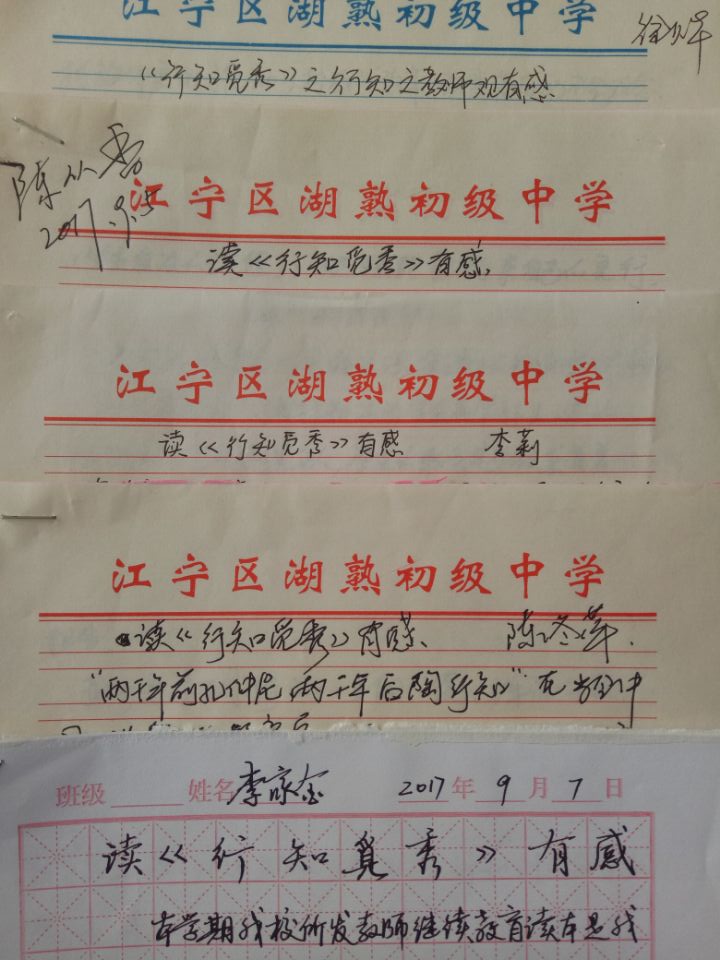 江宁区湖熟初级中学
徐
《行知觅秀》之行知之教师观有感
陈从香
2017.9.5
江宁区湖熟初级中学
读《行知觅秀》有感.
江宁区湖熟初级中学
读《行知觅秀》有感 李莉
江宁区湖熟初级中学
读《行知觅秀》有感、 陈冬萍.
“两千年前孔仲尼,两千年后陶行知”
班级 姓名 李家金 2017年9月7日
读《行知觅秀》有感
本学期我校所发教师继续教育读本是我